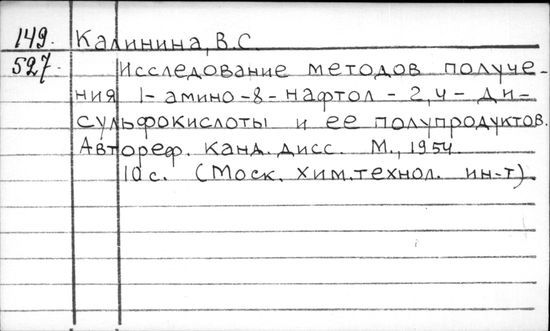 149. Калинина, В.С.
527. Исследование методов получе-
ния 1-амино-8-нафтол-2,4-ди-
сульфокислоты и ее полупродуктов.
Автореф. канд. дисс. М., 1954.
10 с. (Моск. хим. технол. ин-т)